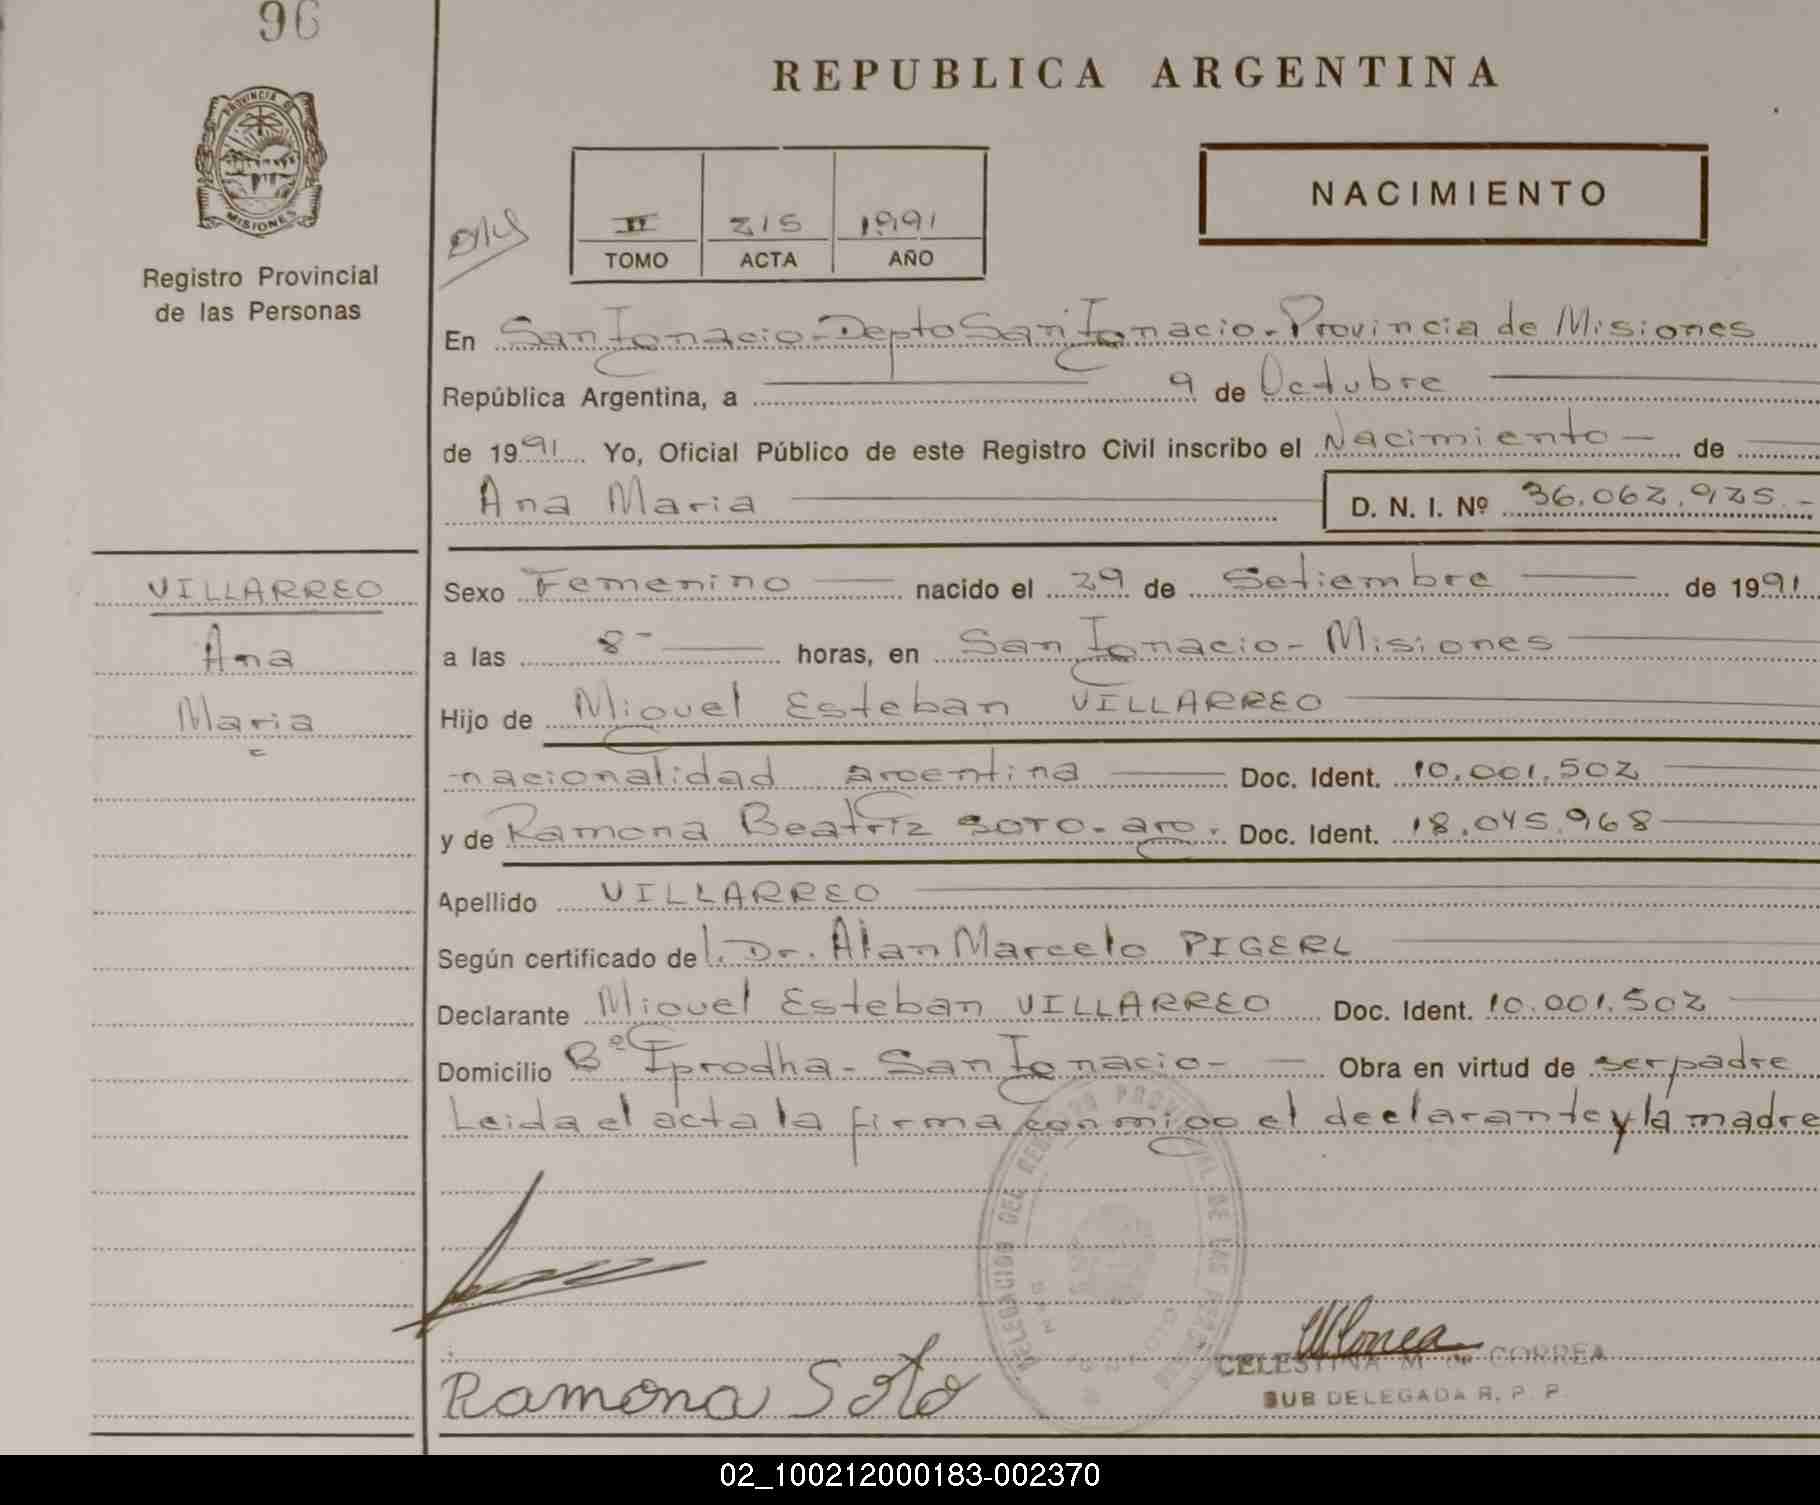 96
REPUBLICA ARGENTINA
PROVINCIA DE
MISIONES
Registro Provincial
de las Personas
NACIMIENTO
II 215 1991
TOMO ACTA AÑO
En San Ignacio - Depto San Ignacio - Provincia de Misiones
República Argentina, a 9 de Octubre
de 1991 Yo, Oficial Público de este Registro Civil inscribo el Nacimiento - de
Ana Maria D. N. I. Nº 36.062.925.-
VILLARREO
Ana
Maria
Sexo Femenino nacido el 29 de Setiembre de 1991
a las 8- horas, en San Ignacio - Misiones
Hijo de Miguel Esteban VILLARREO
nacionalidad argentina Doc. Ident. 10.001.502
y de Ramona Beatriz SOTO - arg. Doc. Ident. 18.045.968
Apellido VILLARREO
Según certificado de l. Dr. Alan Marcelo PIGERL
Declarante Miguel Esteban VILLARREO Doc. Ident. 10.001.502
Domicilio Bº Iprodha - San Ignacio - Obra en virtud de ser padre
Leida el acta la firma conmigo el declarante y la madre
DELEGACION DEL REGISTRO PROVINCIAL DE LAS PERSONAS
CELESTINA M. de CORREA
SUB DELEGADA R. P. P.
Ramona Soto
02_100212000183-002370